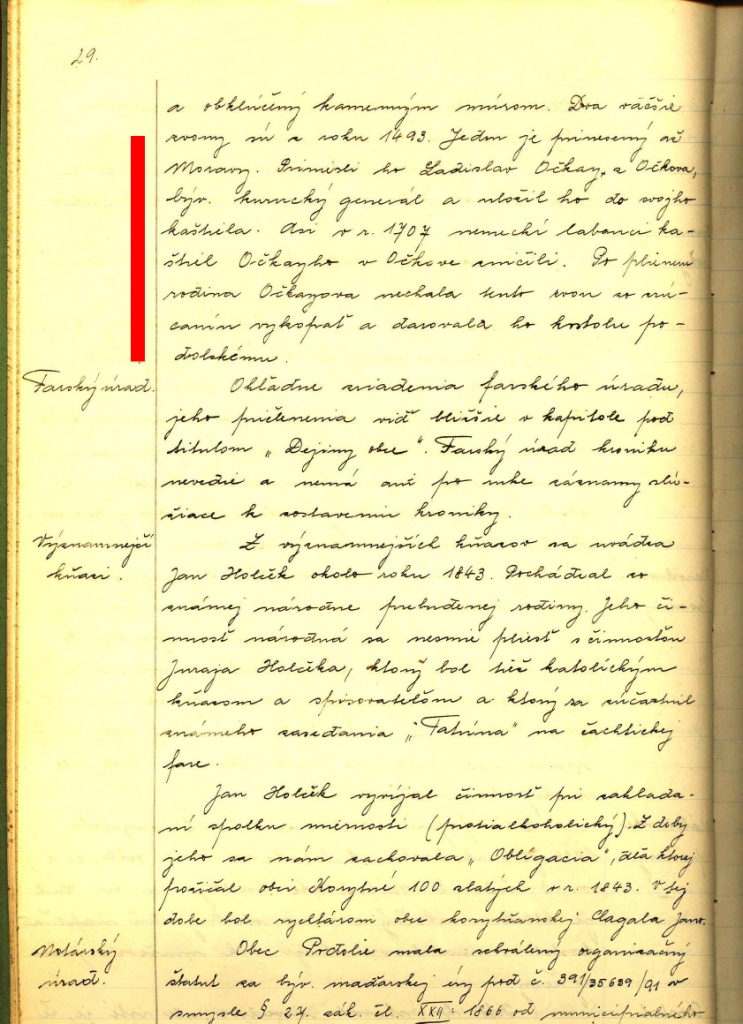 29.
a obkľúčený kamenným múrom. Dva väčšie
zvony sú z roku 1493. Jeden je prinesený až
Moravy. Priniesli ho Ladislav Očkay, z Očkova,
býv. kurucký generál a uložil ho do svojho
kaštiela. Asi v r. 1707 nemeckí labanci ka-
štiel Očkayho v Očkove zničili. Po plienení
rodina Očkayova nechala tento zvon zo zrú-
canín vykopať a darovala ho kostolu po-
dolskému.
Farský úrad.
Ohľadne zriadenia farského úradu,
jeho pričlenenia viď bližšie v kapitole pod
titulom „Dejiny obce“. Farský úrad kroniku
nevedie a nemá ani po ruke záznamy slú-
žiace k zostaveniu kroniky.
Významnejší
kňazi.
Z významnejších kňazov sa uvádza
Jan Holček okolo roku 1843. Pochádzal zo
známej národne prebudenej rodiny. Jeho či-
nnosť národná sa nesmie pliesť s činnosťou
Juraja Holčeka, ktorý bol tiež katolíckým
kňazom a spisovateľom a ktorý sa zúčastnil
známeho zasedania „Tatrína“ na čachtickej
fare.
Jan Holček vyvíjal činnosť pri zaklada-
ní spolku miernosti (protialkoholický). Z doby
jeho sa nám zachovala „Obligacia“, dľa ktorej
požičal obci Korytné 100 zlatých v r. 1843. V tej
dobe bol rychtárom obce korytňanskej Cagala Jano.
Notárský
úrad.
Obec Podolie mala schválený organizačný
štatut za býv. maďarskej éry pod č. 391/35639/91 v
smysle § 27. zák. čl. XXII: 1866 od municipiálneho